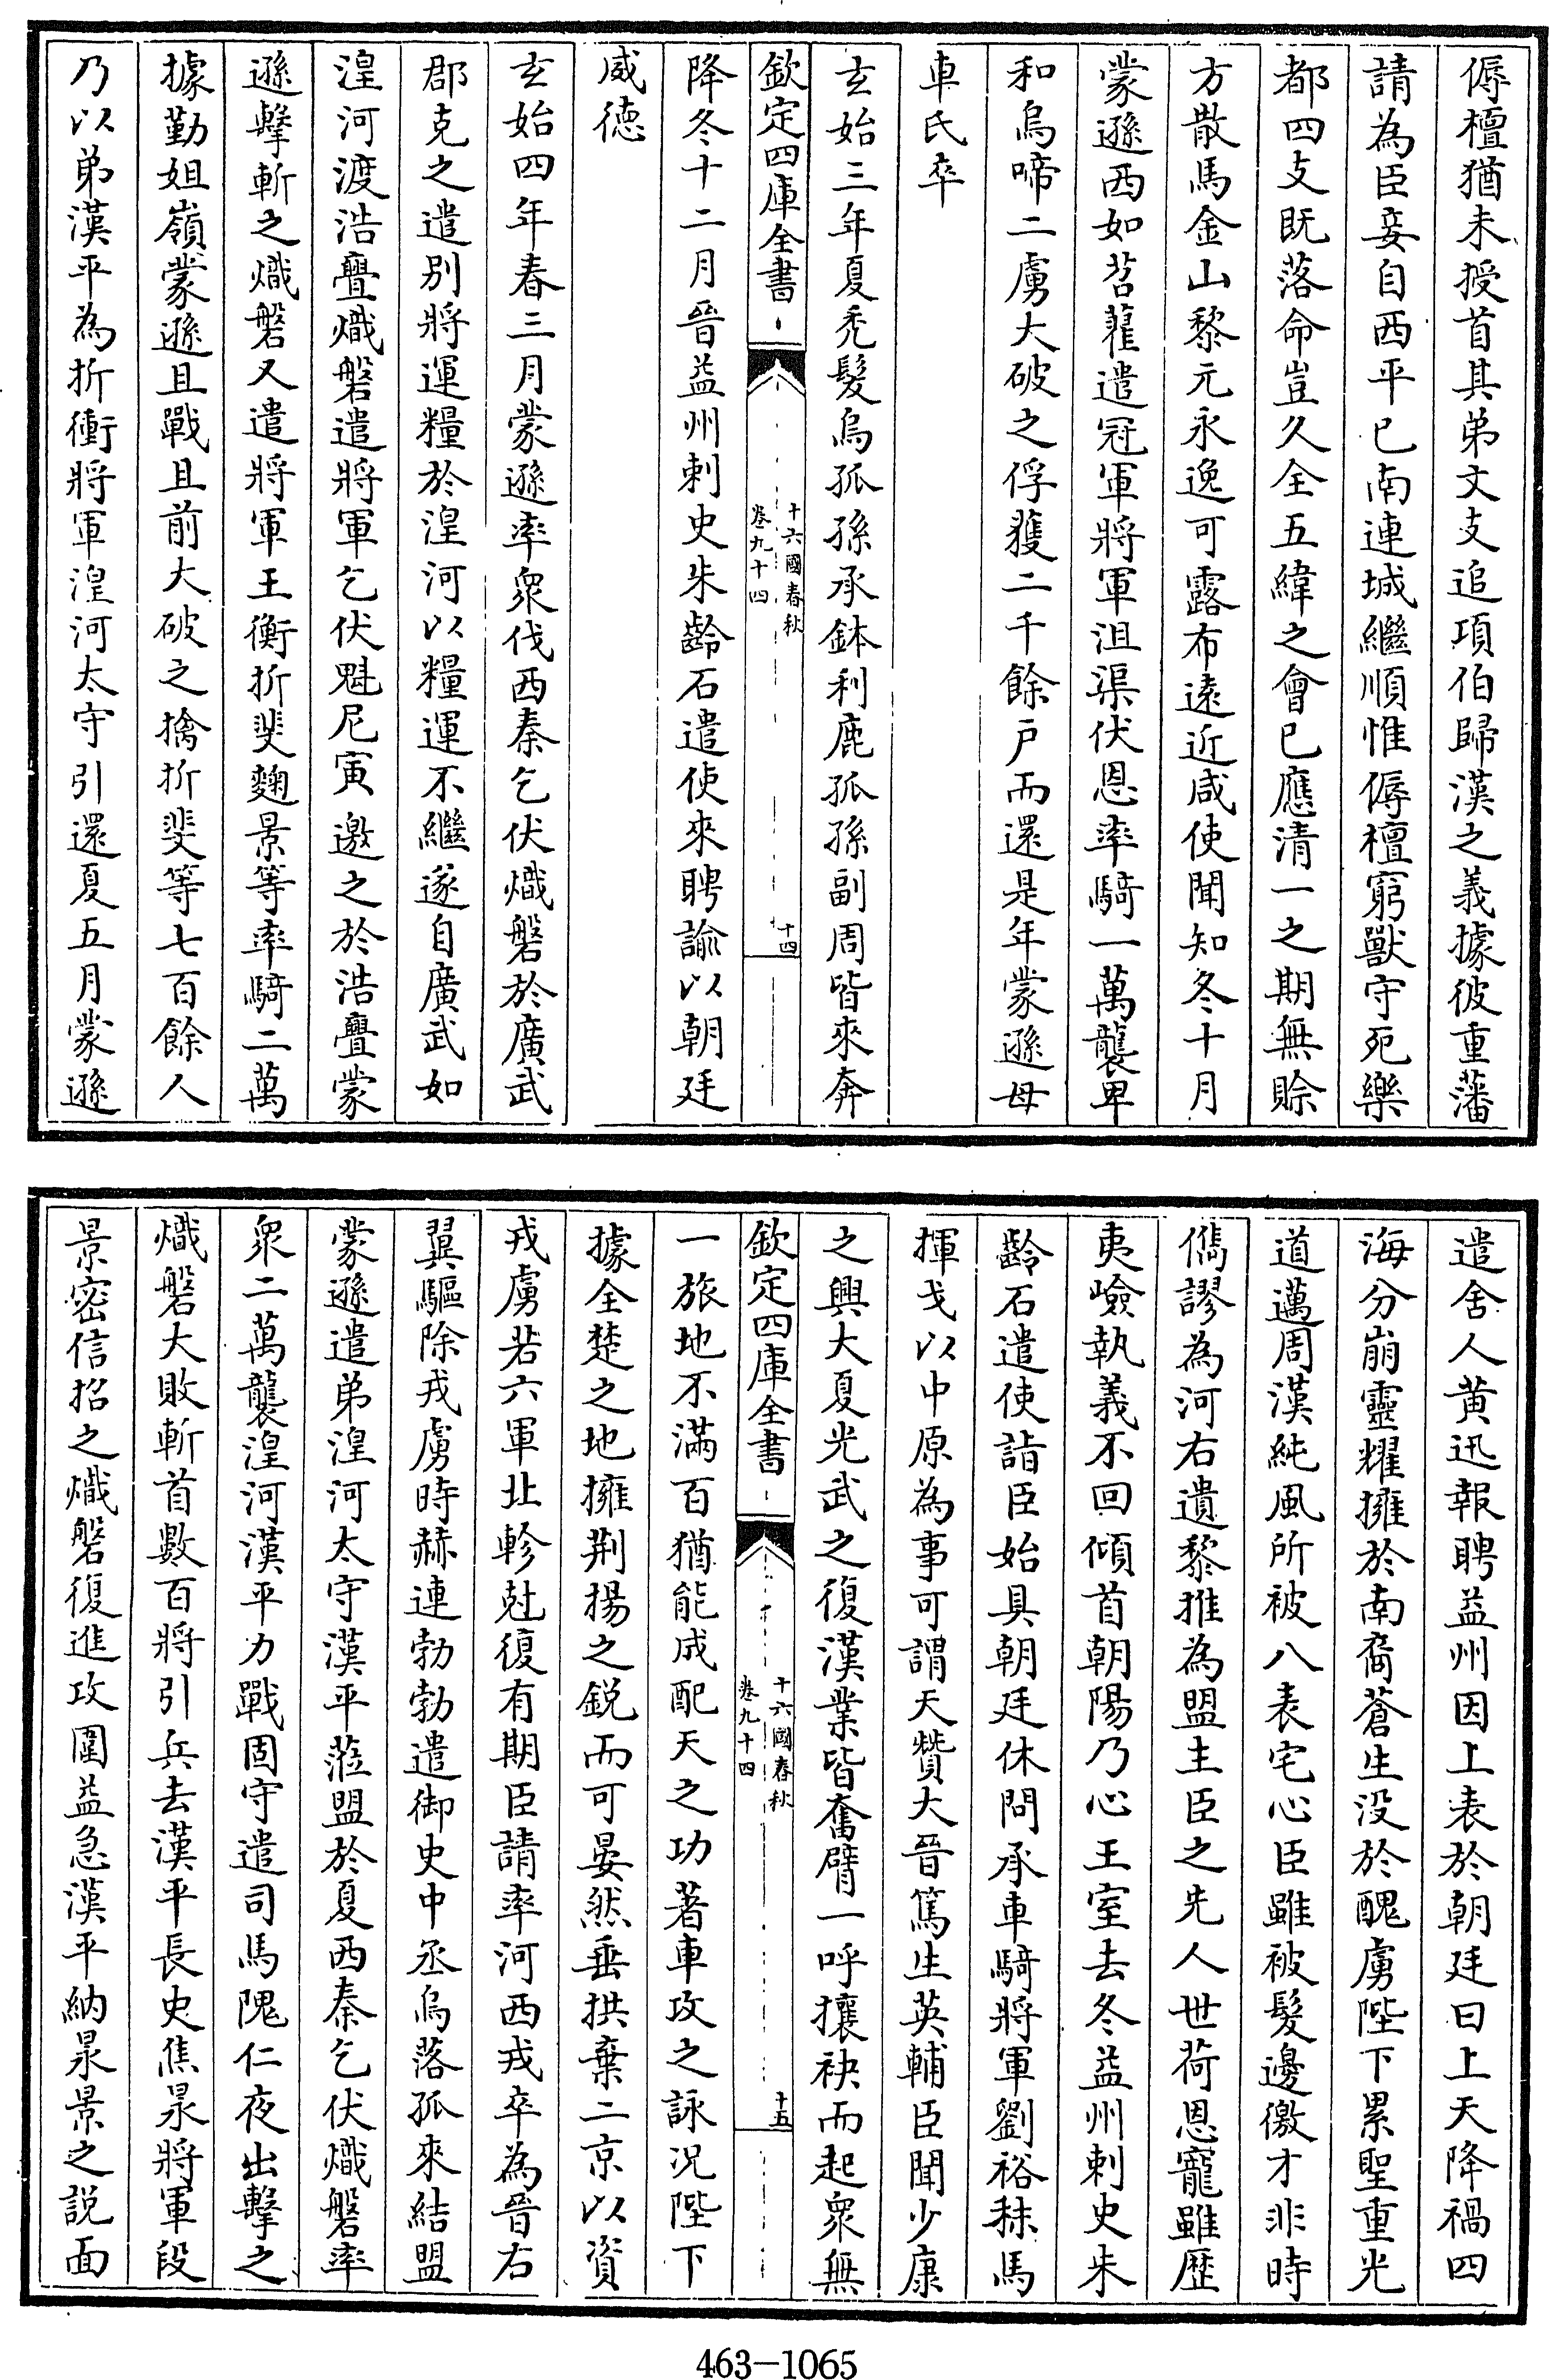 傉檀猶未授首其弟文支追項伯歸漢之義據彼重藩
請為臣妾自西平已南連城繼順惟傉檀窮獸守死樂
都四支既落命豈久全五緯之會已應清一之期無賒
方散馬金山黎元永逸可露布遠近咸使聞知冬十月
蒙遜西如苕藋遣冠軍將軍沮渠伏恩率騎一萬襲卑
和烏啼二虜大破之俘獲二千餘戶而還是年蒙遜母
車氏卒
玄始三年夏禿髮烏孤孫承鉢利鹿孤孫副周皆來奔
欽定四庫全書
十六國春秋
卷九十四
十四
降冬十二月晉益州刺史朱齡石遣使來聘諭以朝廷
威德
玄始四年春三月蒙遜率衆伐西秦乞伏熾磐於廣武
郡克之遣別將運糧於湟河以糧運不繼遂自廣武如
湟河渡浩亹熾磐遣將軍乞伏魁尼寅邀之於浩亹蒙
遜擊斬之熾磐又遣將軍王衡折斐麴景等率騎二萬
據勤姐嶺蒙遜且戰且前大破之擒折斐等七百餘人
乃以弟漢平為折衝將軍湟河太守引還夏五月蒙遜
遣舍人黃迅報聘益州因上表於朝廷曰上天降禍四
海分崩靈耀擁於南裔蒼生没於醜虜陛下累聖重光
道邁周漢純風所被八表宅心臣雖被髮邊徼才非時
儁謬為河右遺黎推為盟主臣之先人世荷恩寵雖歷
夷嶮執義不回傾首朝陽乃心王室去冬益州刺史朱
齡石遣使詣臣始具朝廷休問承車騎將軍劉裕秣馬
揮戈以中原為事可謂天贊大晉篤生英輔臣聞少康
之興大夏光武之復漢業皆奮臂一呼攘袂而起衆無
欽定四庫全書
十六國春秋
卷九十四
十五
一旅地不滿百猶能成配天之功著車攻之詠况陛下
據全楚之地擁荆揚之銳而可晏然垂拱棄二京以資
戎虜若六軍北軫尅復有期臣請率河西戎卒為晉右
翼驅除戎虜時赫連勃勃遣御史中丞烏落孤來結盟
蒙遜遣弟湟河太守漢平蒞盟於夏西秦乞伏熾磐率
衆二萬襲湟河漢平力戰固守遣司馬隗仁夜出擊之
熾磐大敗斬首數百將引兵去漢平長史焦㫤將軍段
景密信招之熾磐復進攻圍益急漢平納㫤景之說面
463-1065